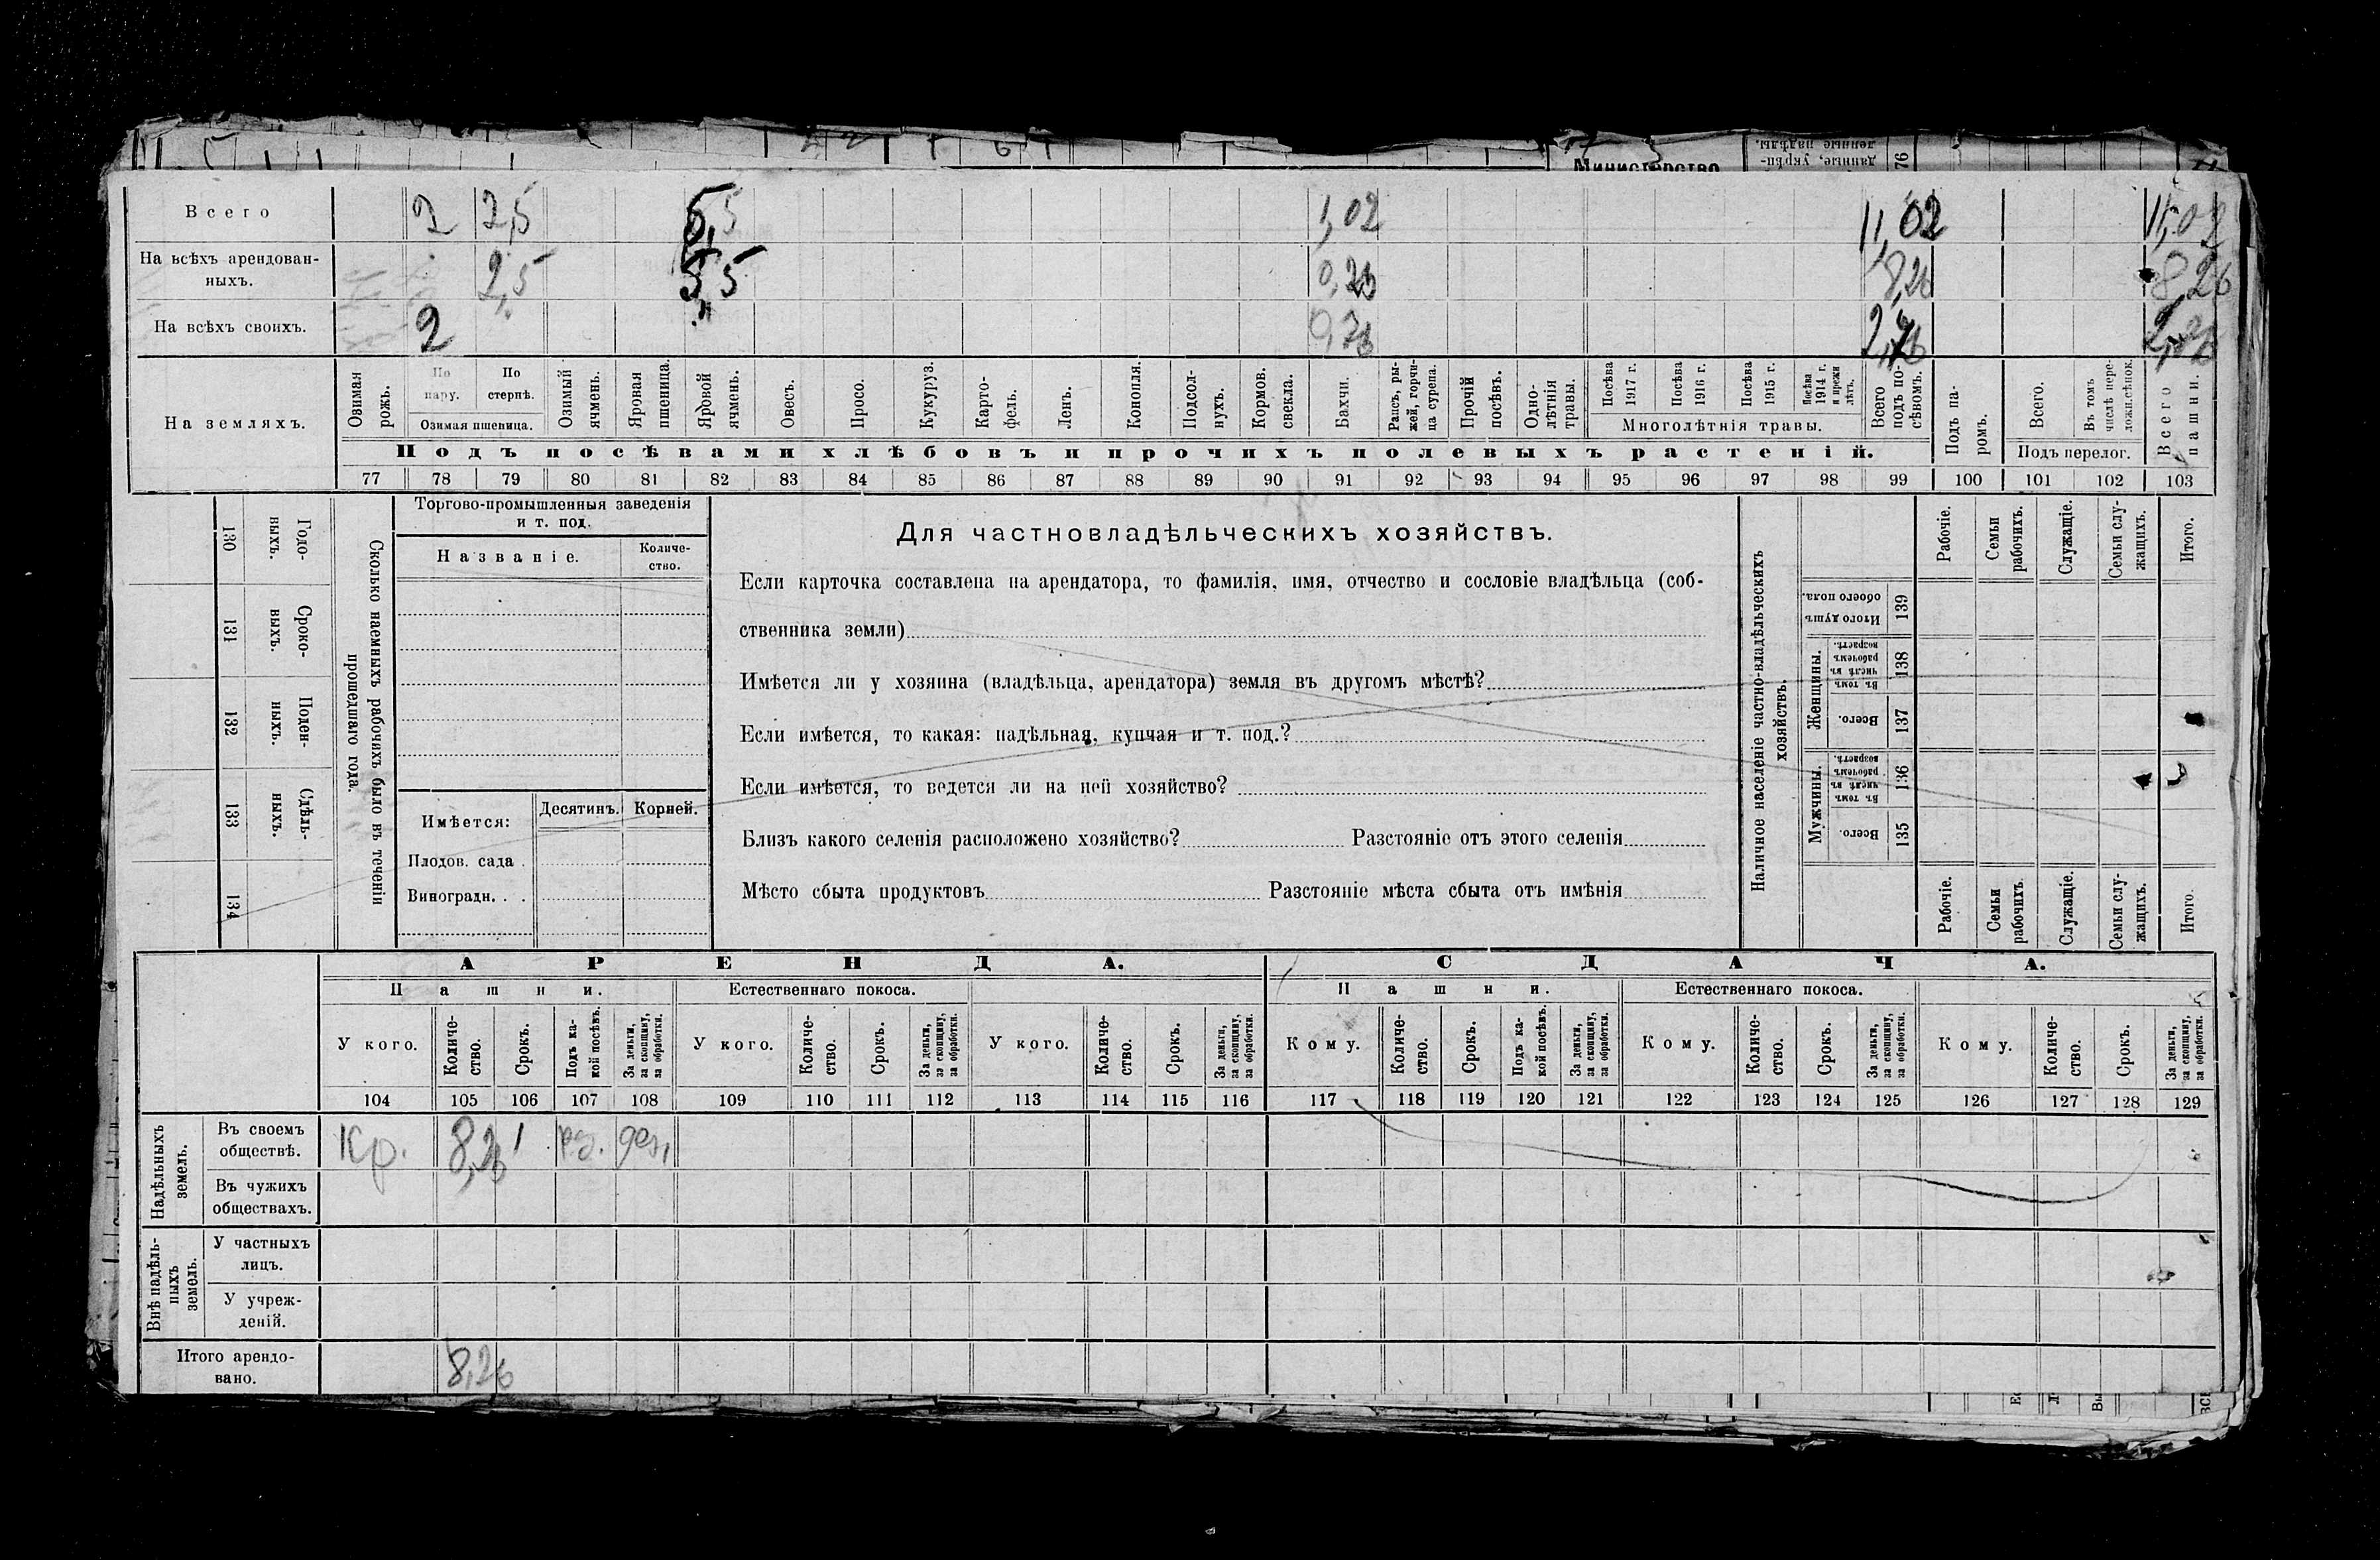 Министерство
76
Всего 2 2,5 5,5 1,02 11,02 11,02
На всѣхъ арендован-
ныхъ. 2,5 5,5 0,26 8,26 8,26
На всѣхъ своихъ. 2 0,76 2,76 2,76
На земляхъ.
Озимая рожь.
По пару.
По стернѣ.
Озимая пшеница.
Озимый ячмень.
Яровая пшеница.
Яровой ячмень.
Овесъ.
Просо.
Кукуруз.
Карто-
фель.
Ленъ.
Конопля.
Подсол-
нухъ.
Кормов.
свекла.
Бахчи.
Рапсъ, ры-
жей, горчи-
ца сурепа.
Прочій посѣвъ.
Одно-
лѣтнія травы.
Посѣва 1917 г.
Посѣва 1916 г.
Посѣва 1915 г.
Посѣва 1914 г. и прежн лѣтъ.
Многолѣтнія травы.
Всего подъ по-
сѣвомъ.
Подъ па-
ромъ.
Всего.
Въ томъ числѣ пере-
ложн.сѣнок.
Подъ перелог.
Всего пашни.
Подъ посѣвами хлѣбовъ и прочихъ полевыхъ растеній.
77 78 79 80 81 82 83 84 85 86 87 88 89 90 91 92 93 94 95 96 97 98 99 100 101 102 103
130 Годо-
ныхъ.
131 Сроко-
ныхъ.
132 Поден-
ныхъ.
133 Сдѣль-
ныхъ.
134
Сколько наемныхъ рабочихъ было въ теченіи
прошедшаго года.
Торгово-промышленныя заведенія
и т. под.
Названіе.
Количе-
ство.
Имѣется: Десятинъ. Корней.
Плодов. сада .
Виноградн. . .
Для частновладѣльческихъ хозяйствъ.
Если карточка составлена на арендатора, то фамилія, имя, отчество и сословіе владѣльца (соб-
ственника земли)
Имѣется ли у хозяина (владѣльца, арендатора) земля въ другомъ мѣстѣ?
Если имѣется, то какая: надѣльная, купчая и т. под.?
Если имѣется, то ведется ли на ней хозяйство?
Близъ какого селенія расположено хозяйство? Разстояніе отъ этого селенія
Мѣсто сбыта продуктовъ Разстояніе мѣста сбыта отъ имѣнія
Наличное населеніе частно-владѣльческихъ
хозяйствъ.
Рабочіе.
Семьи рабочихъ.
Служащіе.
Семьи слу-
жащихъ.
Итого.
Итого душъ обоего пола. 139
Женщины.
Въ томъ числѣ въ рабочемъ возрастѣ. 138
Всего. 137
Мужчины.
Въ томъ числѣ въ рабочемъ возрастѣ. 136
Всего. 135
Рабочіе.
Семьи рабочихъ
Служащіе.
Семьи слу-
жащихъ.
Итого.
АРЕНДА. СДАЧА.
Пашни. Естественнаго покоса. Пашни. Естественнаго покоса.
У кого.
Количе-
ство.
Срокъ.
Подъ ка-
кой посѣвъ.
За деньги,
за скопщину,
за обработки.
У кого.
Количе-
ство.
Срокъ.
За деньги,
за скопщину,
за обработки.
У кого.
Количе-
ство.
Срокъ.
За деньги,
за скопщину,
за обработки.
Кому.
Количе-
ство.
Срокъ.
Подъ ка-
кой посѣвъ.
За деньги,
за скопщину,
за обработки.
Кому.
Количе-
ство.
Срокъ.
За деньги,
за скопщину,
за обработки.
Кому.
Количе-
ство.
Срокъ.
За деньги,
за скопщину,
за обработки.
104 105 106 107 108 109 110 111 112 113 114 115 116 117 118 119 120 121 122 123 124 125 126 127 128 129
Надѣльныхъ
земель.
Въ своемъ
обществѣ. Кр. 8,26 1
Въ чужихъ
обществахъ.
Внѣ надѣль-
ныхъ
земель.
У частныхъ
лицъ.
У учреж-
деній.
Итого арендо-
вано. 8,26